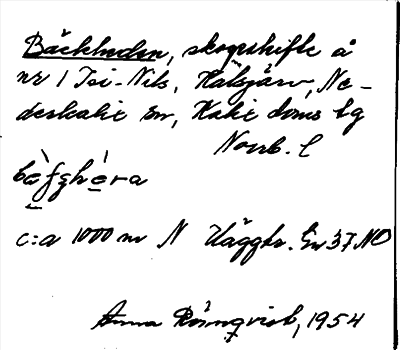 Bäckheden, skogshifte å
nr 1 Isi-Nils, Hälsjärv, Ne-
derkalix sn, Kalix doms lg
Norrb. l
c:a 1000 m N Väggbr. Gr 37 NO
Anna Rönnqvist, 1954